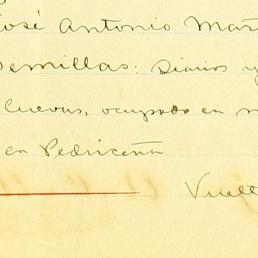 José Antonio Mar
Semillas: Diarios y
Cuevas, ocupado en
en Pedriceña
Vuelt